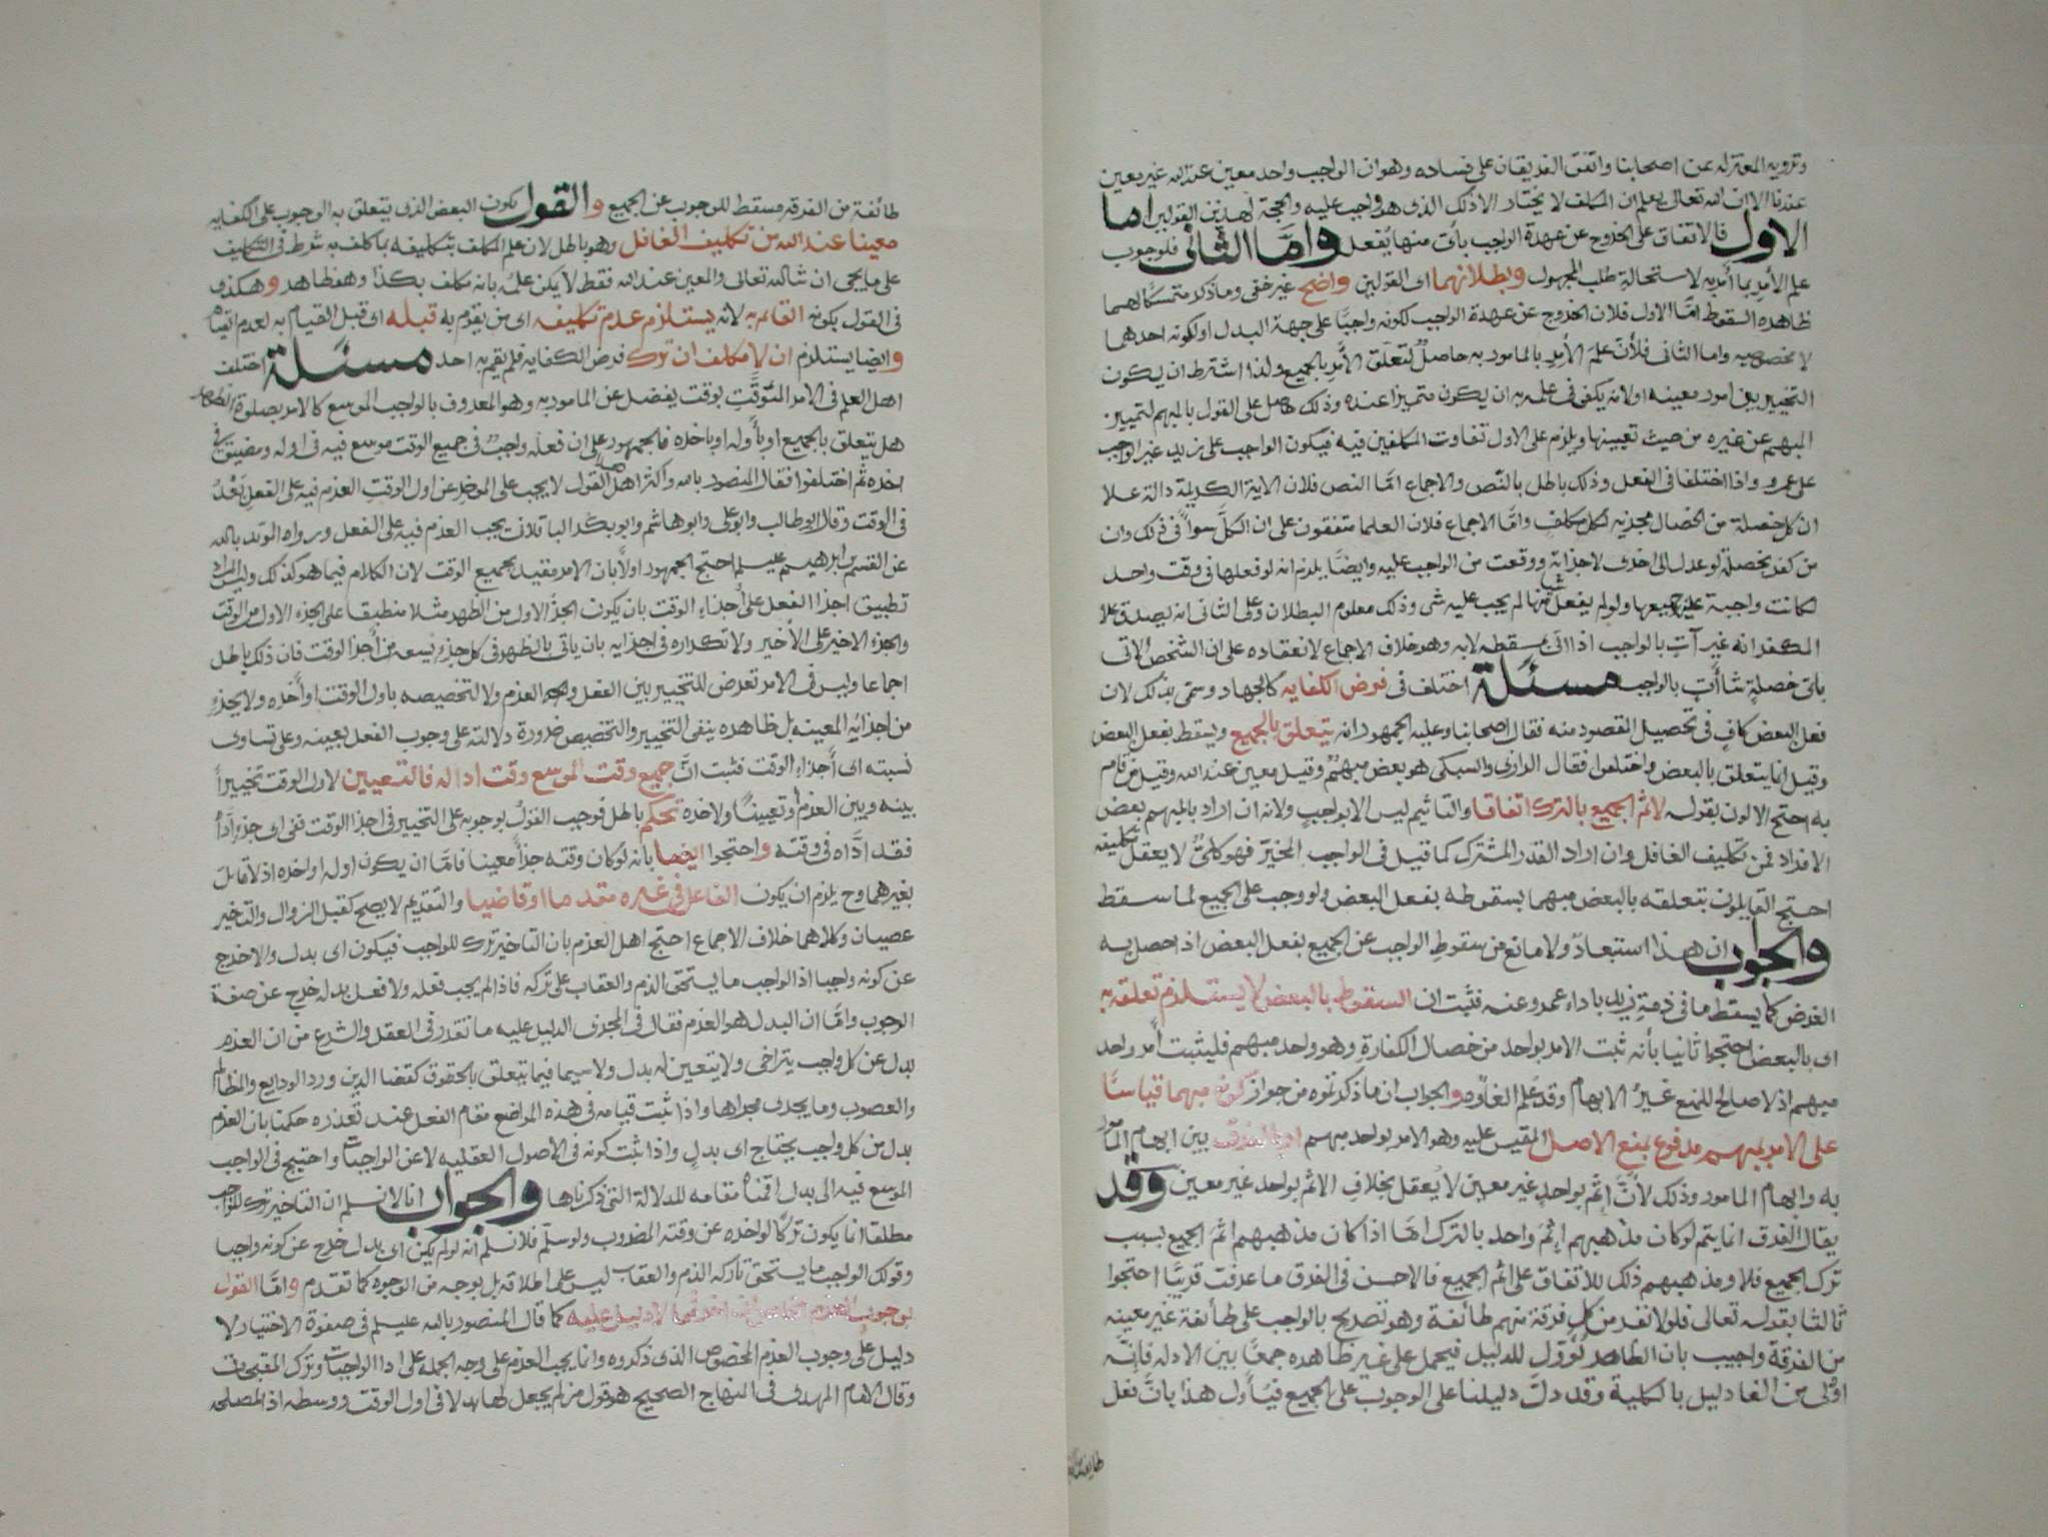 وترويه المعتزله عن اصحابنا واتفق الفريقان على فساده وهو ان الواجب واحد معين عند الله غير معين
عندنا الا ان الله تعالى يعلم ان المكلف لا يختار الا ذلك الذى هو واجب عليه والحجة لهذين القولين اما
الاول فالاتفاق على الخروج عن عهدة الواجب بأى منها يُفعل واما الثانى فلوجوب
علم الأمر بما أُمر به لاستحالة طلب المجهول وبطلانهما اى القولين واضح غير خفى وما ذكر متمسكا لهما
ظاهره السقوط امّا الاول فلان الخروج عن عهدة الواجب لكونه واجبًا على جهة البدل او لكونه احدهما
لا بخصوصيه واما الثانى فلأن علم الأمر بالمامور به حاصلٌ لتعلق الأمر بالجميع ولذا اشترط ان يكون
التخيير بين امور معينه او لانه يكفى فى علمه به ان يكون متميزا عنده وذلك حاصل على القول بالمبهم لتمييز
المبهم عن غيره من حيث تعيينها ويلزم على الاول تفاوت المكلفين فيه فيكون الواجب على زيد غير الواجب
على عمرو اذا اختلفا فى الفعل وذلك باطل بالنص والاجماع امّا النص فلان الاية الكريمة دالة علا
ان كل خصلة من الخصال مجزيه لكل مكلفٍ وامّا الاجماع فلان العلما متفقون على ان الكلّ سواً فى ذلك وان
من كفر بخصلة لو عدل الى اخرى لاجزاته ووقعت من الواجب عليه وايضًا يلزم انه لو فعلها فى وقت واحد
لكانت واجبة عليه جميعها ولو لم يفعل شيا منها لم يجب عليه شى وذلك معلوم البطلان وعلى الثانى انه يصدق علا
المكفر انه غير آتٍ بالواجب اذا اتى بمسقطه لا به وهو خلاف الاجماع لانعقاده على ان الشخص الاتى
باىّ خصلةٍ شا أتٍ بالواجب مسئلة اختلف فى فرض الكفايه كالجهاد وسمّى بذلك لان
فعل البعض كافٍ فى تحصيل المقصود منه فقال اصحابنا وعليه الجمهور انه يتعلق بالجميع ويسقط بفعل البعض
وقيل انما يتعلق بالبعض واختلفوا فقال الرازى والسبكى هو بعض مبهمٌ وقيل معين عند الله وقيل من قام
به احتج الاولون بقوله لاثم الجميع بالترك اتفاقا والتاثيم ليس الا بواجبٍ ولانه ان اراد بالمبهم بعض
الافراد فمن تكليف الغافل وان اراد القدر المشترك كما قيل فى الواجب المخيّر فهو كلىٌّ لا يعقل تكليفه
احتج القايلون بتعلقه بالبعض مبهما بسقوطه بفعل البعض ولو وجب على الجميع لما سقط
والجواب ان هذا استبعادٌ ولا مانع من سقوط الواجب عن الجميع بفعل البعض اذا حصل به
الغرض كما يسقط ما فى ذمة زيد باداء عمرو عنه فثبت ان السقوط بالبعض لا يستلزم تعلقه به
اى بالبعض احتجوا ثانيا بأنه ثبت الامر بواحد من خصال الكفارة وهو واحد مبهم فليثبت أمر واحد
مبهم اذ لا صالح للمنع غيرُ الابهام وقد عُلم الغاوه والجواب ان ما ذكرتموه من جواز كونه مبهما قياسًا
على الامر بمبهم مدفوع بمنع الاصل المقيس عليه وهو الامر بواحد مبهم او بالفرق بين ابهام المامور
به وابهام المامور وذلك لأنّ إثم بواحدٍ غير معين لا يُعقل بخلاف الاثم بواحد غير معين وقد
يقال الفرق انما يتم لو كان مذهبهم إثم واحد بالترك امّا اذا كان مذهبهم اثم الجميع بسبب
ترك الجميع فلا ومذهبهم ذلك للاتفاق على اثم الجميع فالاحسن فى الفرق ما عرفت قريبًا احتجوا
ثالثا بقوله تعالى فلولا نفر من كل فرقة منهم طائفة وهو تصريح بالواجب على طائفة غير معينه
من الفرقة واجيب بان الظاهر يُؤَوّل للدليل فيحمل على غير ظاهره جمعًا بين الادله فإنّه
اوْلى من الغا دليل بالكلية وقد دلّ دليلنا على الوجوب على الجميع فيُأول هذا بأنّ فعل
طائفة من الفرقه مسقط للوجوب عن الجميع والقول بكون البعض الذى يتعلق به الوجوب على الكفايه
معينا عند الله من تكليف الغافل وهو باطل لان علم المكلف بتكليفه بما كلف به شرط فى التكليف
على ما يجى ان شا الله تعالى والمعين عند الله فقط لا يمكن علمُه بانه مكلف بكذا وهو ظاهر وهكذى
فى القول بكونه القائم به لانه يستلزم عدم تكليفه اى من يقوم به قبله اى قبل القيام به لعدم القيام
وايضا يستلزم ان لا مكلف ان ترك فرض الكفايه فلم يقم به احد مسئلة اختلف
اهل العلم فى الامر المؤقّت بوقت يفضل عن المامور به وهو المعروف بالواجب الموسع كالامر بصلوة الظهر
هل يتعلق بالجميع او بأوله او باخره فالجمهور على ان فعله واجبٌ فى جميع الوقت موسع فيه فى اوله ومضيق فى
اخره ثم اختلفوا فقال المنصور بالله واكثر اهل هذا القول لا يجب على المؤخر عن اول الوقت العزم فيه على الفعل بَعْدُ
فى الوقت وقال ابو طالب وابو على وابو هاشم وابو بكر الباقلانى يجب العزم فيه على الفعل ورواه المويد بالله
عن القسم بن ابرهيم عليلم احتج الجمهور اولًا بان الامر مقيد بجميع الوقت لان الكلام فيما هو كذلك وليس المراد
تطبيق اجزا الفعل على أجزاء الوقت بان يكون الجزُ الاول من الظهر مثلا منطبقا على الجزء الاول من الوقت
والجزء الاخير على الأخير ولا تكراره فى اجزايه بان ياتى بالظهر فى كل جزءٍ يسعه من أجزا الوقت فان ذلك باطل
اجماعا وليس فى الامر تعرض للتخيير بين الفعل والعزم ولا لتخصيصه باول الوقت او أخره ولا بجزءٍ
من اجزايه المعينه بل ظاهره ينفى التخيير والتخصيص ضرورة دلالته على وجوب الفعل بعينه وعلى تساوى
نسبته اى أجزاء الوقت فثبت انّ جميع وقت الموسع وقت ادا له فالتعيين لاول الوقت تخييراً
بينه وبين العزم او تعيينًا ولاخره تحكم باطل فوجب القولُ بوجوبه على التخيير فى اجزا الوقت ففى اى جزء أدّاه
فقد ادّاه فى وقته واحتجوا ايضا بأنه لو كان وقته جزأً معينا فامّا ان يكون اوله او اخره اذ لا قائل
بغيرهما وح يلزم ان يكون الفاعل فى غيره مقدما او قاضيا والتقديم لا يصح كقبل الزوال والتاخير
عصيان وكلاهما خلاف الاجماع احتج اهل العزم بان التاخير ترك للواجب فيكون اى بدل والا خرج
عن كونه واجبا اذ الواجب ما يستحق الذم والعقاب على تركه فاذا لم يجب فعله ولا فعل بدله خرج عن صفة
الوجوب وامّا ان البدل هو العزم فقال فى المجزى الدليل عليه ما تقرر فى العقل والشرع من ان العزم
بدل عن كل واجب يتراخى ولا يتعين له بدل ولا سيما فيما يتعلق بالحقوق كقضا الدين ورد الودايع والمظالم
والغصوب وما يجرى مجراها واذا ثبت قيامه فى هذه المواضع مقام الفعل عند تعذره حكمنا بان العزم
بدل من كل واجب يحتاج اى بدلٍ واذا ثبت كونه فى الاصول العقليه لاعن الواجبات واحتيج فى الواجب
الموسع فيه الى بدل اقمناه مقامه للدلالة التى ذكرناها والجواب انا لا نسلم ان التاخير ترك للواجب
مطلقا انما يكون تركًا لو اخره عن وقته المضروب ولو سلم فلا نسلم انه لو لم يكن اى بدل خرج عن كونه واجبا
وقولك الواجب ما يستحق تاركه الذم والعقاب ليس على اطلاقه بل بوجه من الوجوه كما تقدم وامّا القول
بوجوب العزم لا دليل عليه كما قال المنصور بالله عليلم فى صفوة الاختيار لا
دليل على وجوب العزم المخصوص الذى ذكروه وانما يجب العزم على وجه الجمله على ادا الواجبات وترك المقبحات
وقال الامام المهدى فى المنهاج الصحيح هو قول من لم يجعل لها بدلا فى اول الوقت ووسطه اذ المصلحه